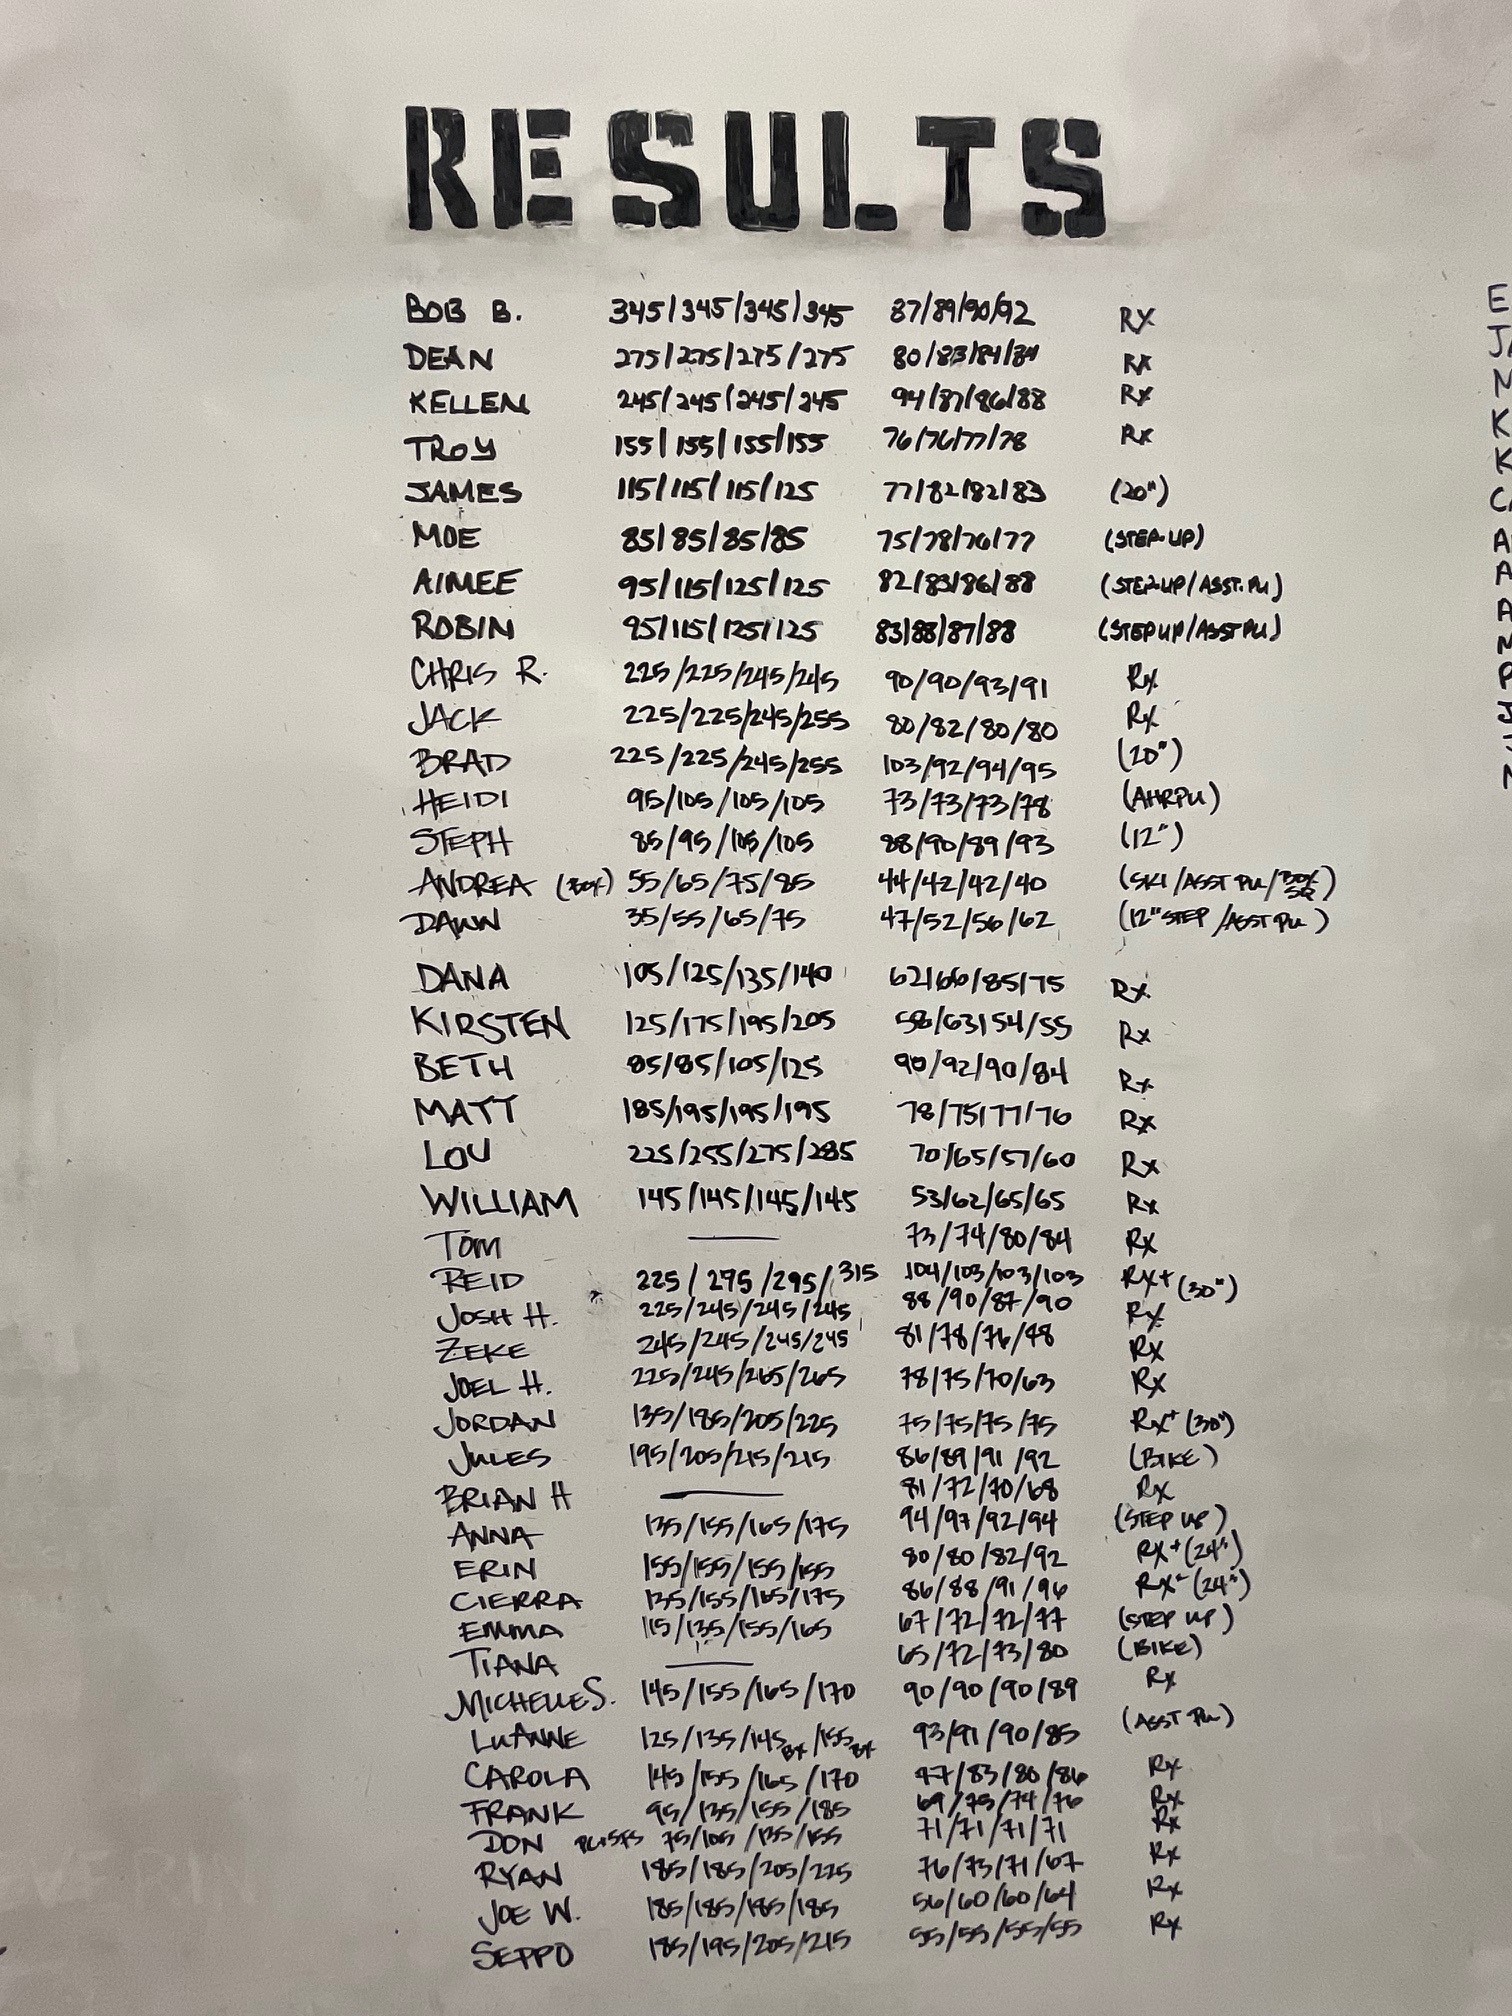 RESULTS
BOB B. 345/345/345/345 87/89/90/92 RX
DEAN 275/275/275/275 80/83/84/84 RX
KELLEN 245/245/245/245 94/87/86/88 RX
TROY 155/155/155/155 76/76/77/78 RX
JAMES 115/115/115/125 77/82/82/83 (20")
MOE 85/85/85/85 75/78/76/77 (STEP-UP)
AIMEE 95/115/125/125 82/83/86/88 (STEP-UP/ASST.PU)
ROBIN 95/115/125/125 83/88/87/88 (STEP UP/ASST PU)
CHRIS R. 225/225/245/245 90/90/93/91 RX
JACK 225/225/245/255 80/82/80/80 RX
BRAD 225/225/245/255 103/92/94/95 (20")
HEIDI 95/105/105/105 73/73/73/78 (AHRPU)
STEPH 85/95/105/105 88/90/89/93 (12")
ANDREA (BOX) 55/65/75/85 44/42/42/40 (SKI/ASST PU/BOX SQ)
DAWN 35/55/65/75 47/52/56/62 (12" STEP/ASST PU)
DANA 105/125/135/140 62/66/85/75 RX
KIRSTEN 125/175/195/205 58/63/54/55 RX
BETH 85/85/105/125 90/92/90/84 RX
MATT 185/195/195/195 78/75/77/76 RX
LOU 225/255/275/285 70/65/57/60 RX
WILLIAM 145/145/145/145 53/62/65/65 RX
TOM — 73/74/80/84 RX
REID 225/275/295/315 104/103/103/103 RX+ (30")
JOSH H. 225/245/245/245 88/90/87/90 RX
ZEKE 245/245/245/245 81/78/76/88 RX
JOEL H. 225/245/265/265 78/75/70/63 RX
JORDAN 135/185/205/225 75/75/75/75 RX+ (30")
JULES 195/205/215/215 86/89/91/92 (BIKE)
BRIAN H — 81/72/70/68 RX
ANNA 135/155/165/175 94/97/92/94 (STEP UP)
ERIN 155/155/155/155 80/80/82/92 RX+ (24")
CIERRA 135/155/165/175 86/88/91/96 RX+ (24")
EMMA 115/135/155/165 67/72/72/77 (STEP UP)
TIANA — 65/72/73/80 (BIKE)
MICHELLE S. 145/155/165/170 90/90/90/89 RX
LUANNE 125/135/145 BX/155 BX 93/91/90/85 (ASST PU)
CAROLA 145/155/165/170 97/83/80/86 RX
FRANK 95/135/155/185 69/75/74/76 RX
DON 75/105/135/155 71/71/71/71 RX
RYAN 185/185/205/225 76/73/71/67 RX
JOE W. 185/185/185/185 56/60/60/64 RX
SEPPO 185/195/205/215 55/55/55/55 RX